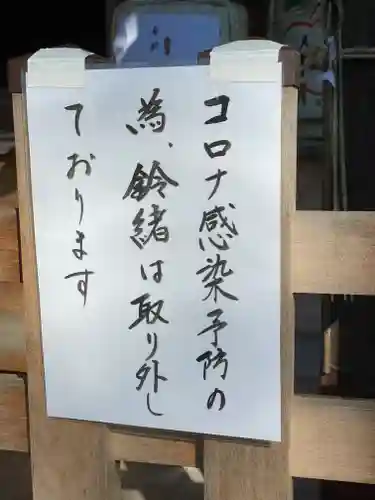 コロナ感染予防の
為、鈴緒は取り外し
ております